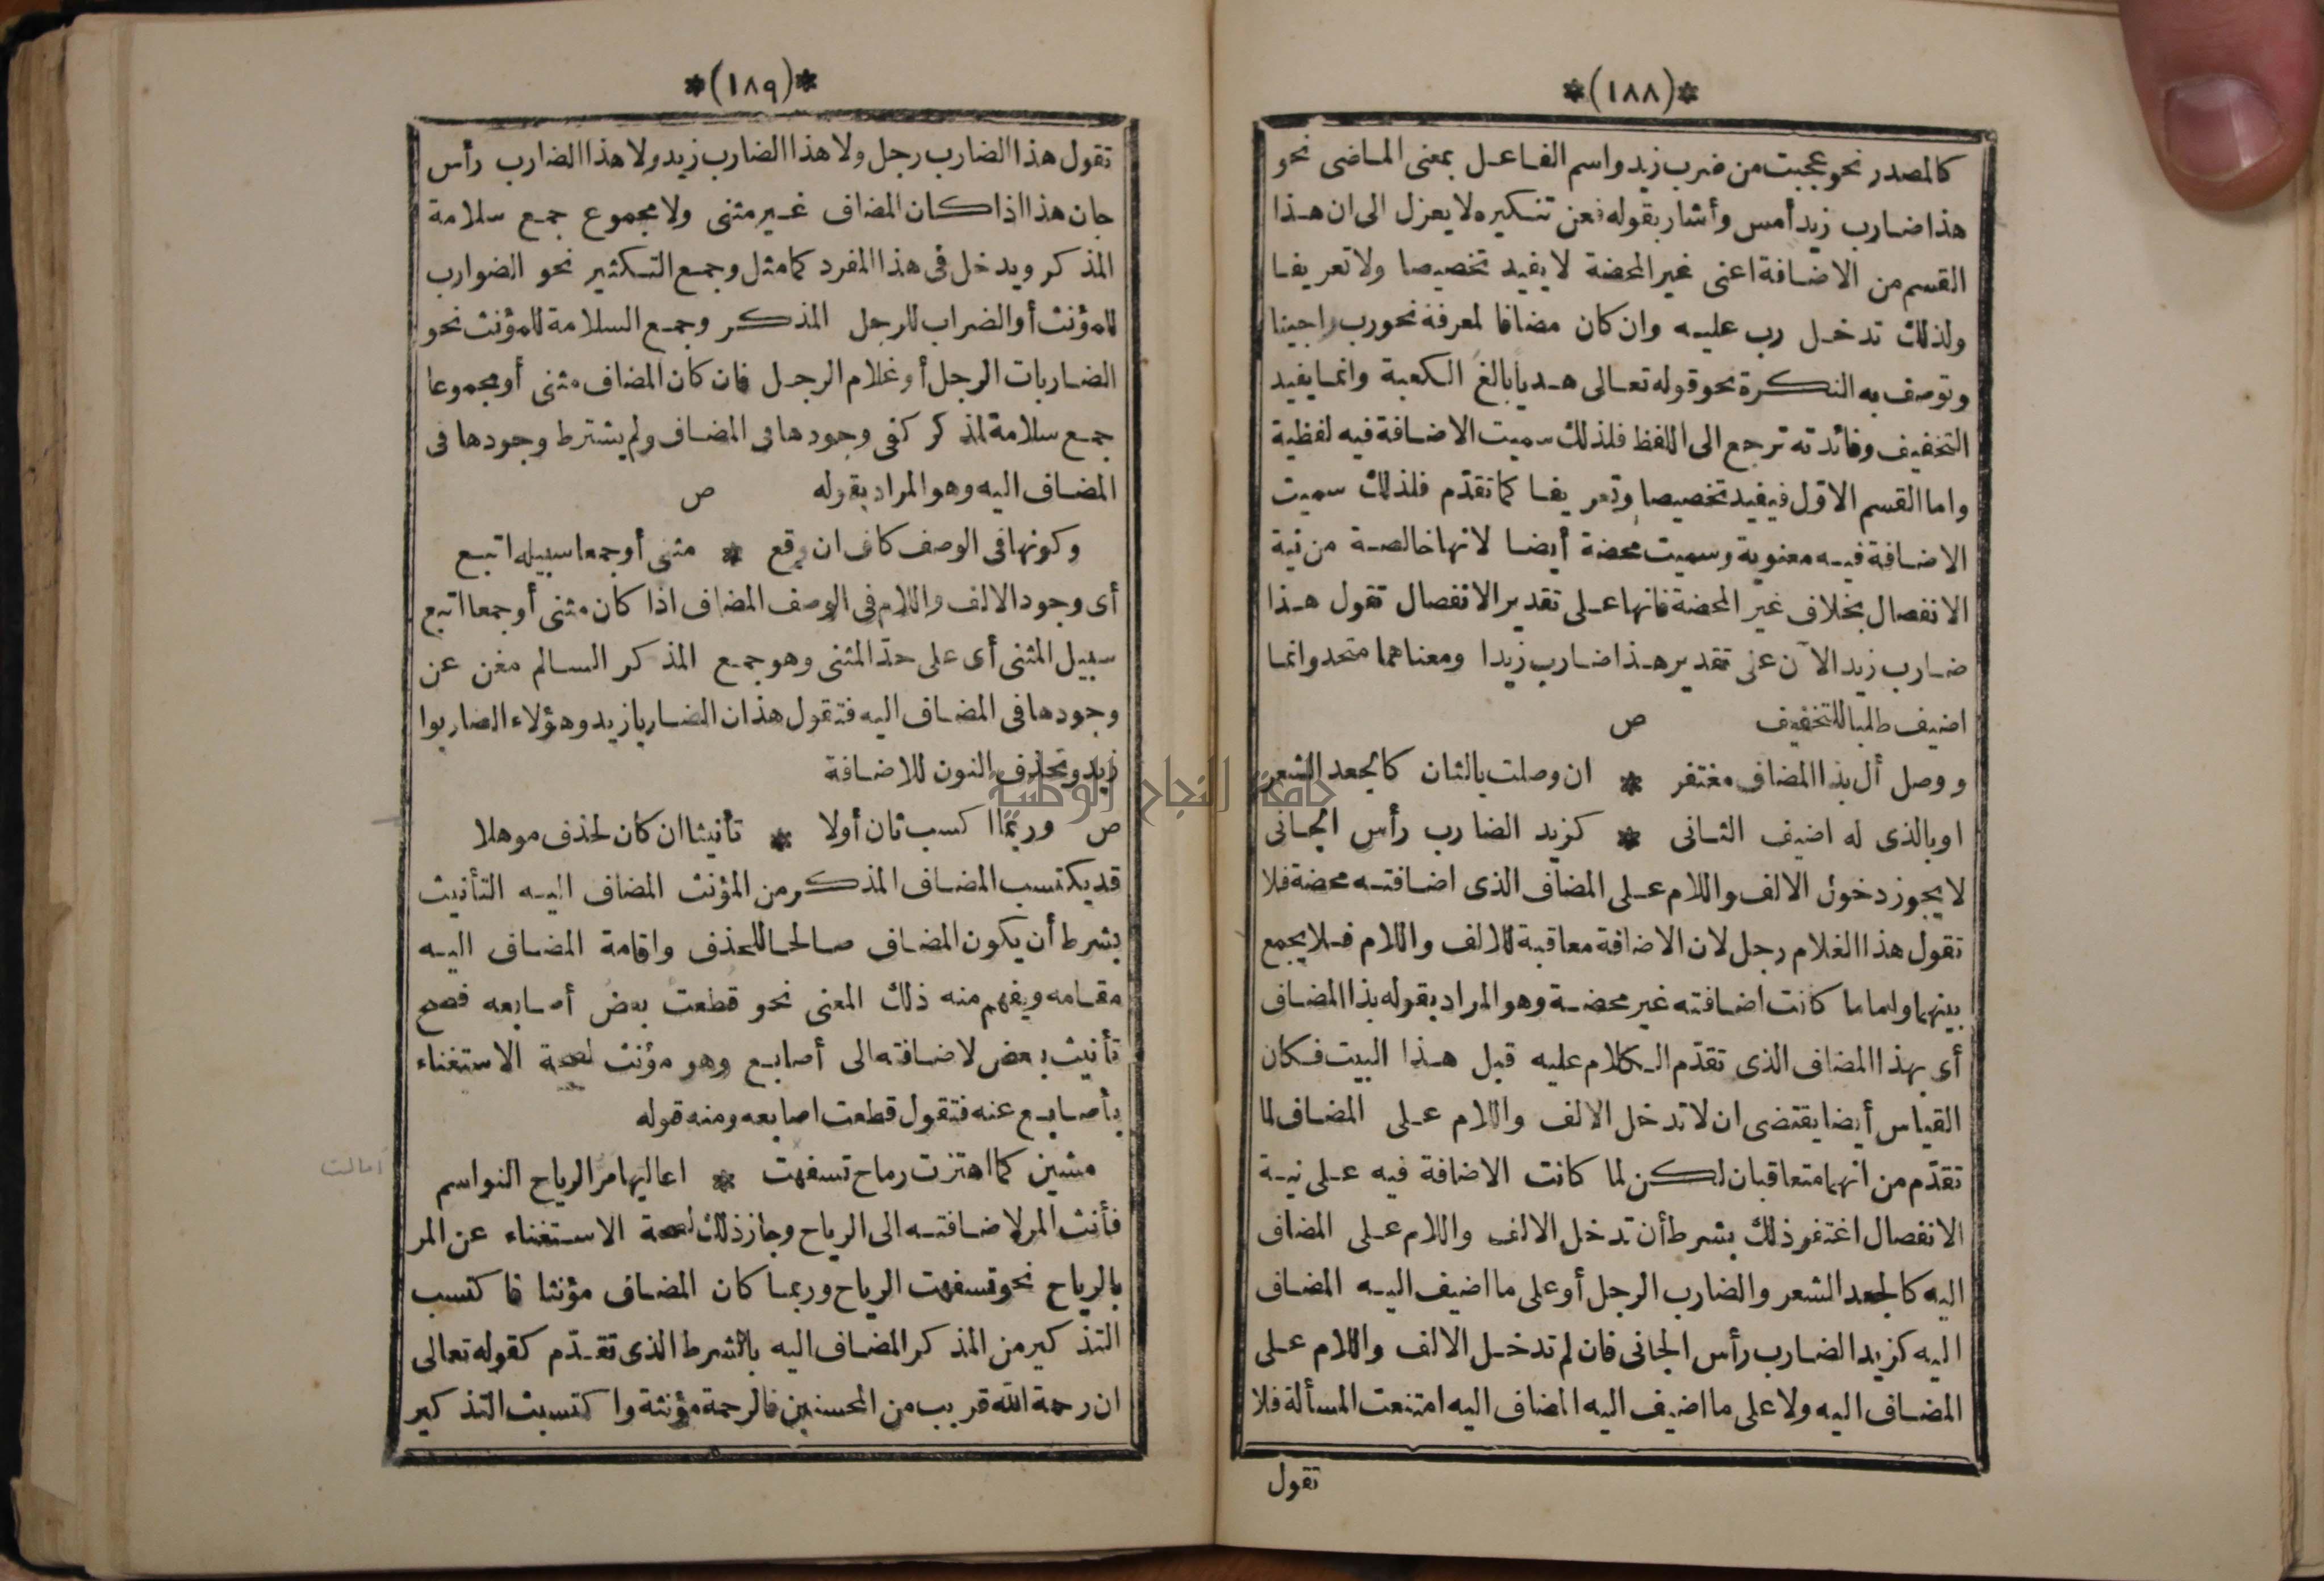 *(١٨٨)*
كالمصدر نحو عجبت من ضرب زيد واسم الفاعل بمعنى الماضى نحو
هذا ضارب زيد أمس وأشار بقوله فعن تنكيره لا يعزل الى ان هذا
القسم من الاضافة اعنى غير المحضة لا يفيد تخصيصا ولا تعريفا
ولذلك تدخل رب عليه وان كان مضافا لمعرفة نحو رب راجينا
وتوصف به النكرة نحو قوله تعالى هديا بالغ الكعبة وانما يفيد
التخفيف وفائدته ترجع الى اللفظ فلذلك سميت الاضافة فيه لفظية
واما القسم الاوّل فيفيد تخصيصا وتعريفا كما تقدّم فلذلك سميت
الاضافة فيه معنوية وسميت محضة أيضا لانها خالصة من نية
الانفصال بخلاف غير المحضة فانها على تقدير الانفصال تقول هذا
ضارب زيد الآن على تقدير هذا ضارب زيدا ومعناهما متحد وانما
اضيف طلبا للتخفيف ص
ووصل أل بذا المضاف مغتفر * ان وصلت بالثان كالجعد الشعر
اوبالذى له اضيف الثانى * كزيد الضارب رأس الجانى
لا يجوز دخول الالف واللام على المضاف الذى اضافته محضة فلا
تقول هذا الغلام رجل لان الاضافة معاقبة للالف واللام فلا يجمع
بينهما واما ما كانت اضافته غير محضة وهو المراد بقوله بذا المضاف
أى بهذا المضاف الذى تقدّم الكلام عليه قبل هذا البيت فكان
القياس أيضا يقتضى ان لا تدخل الالف واللام على المضاف لما
تقدّم من انهما متعاقبان لكن لما كانت الاضافة فيه على نية
الانفصال اغتفر ذلك بشرط أن تدخل الالف واللام على المضاف
اليه كالجعد الشعر والضارب الرجل أو على ما اضيف اليه المضاف
اليه كزيد الضارب رأس الجانى فان لم تدخل الالف واللام على
المضاف اليه ولا على ما اضيف اليه المضاف اليه امتنعت المسألة فلا
تقول
*(١٨٩)*
تقول هذا الضارب رجل ولا هذا الضارب زيد ولا هذا الضارب رأس
جان هذا اذا كان المضاف غير مثنى ولا مجموع جمع سلامة
المذكر ويدخل فى هذا المفرد كما مثل وجمع التكثير نحو الضوارب
للمؤنث أو الضراب للرجل المذكر وجمع السلامة للمؤنث نحو
الضاربات الرجل أو غلام الرجل فان كان المضاف مثنى أو مجموعا
جمع سلامة لمذكر كفى وجودها فى المضاف ولم يشترط وجودها فى
المضاف اليه وهو المراد بقوله ص
وكونها فى الوصف كاف ان وقع * مثنى أو جمعا سبيله اتبع
أى وجود الالف واللام فى الوصف المضاف اذا كان مثنى أو جمعا اتبع
سبيل المثنى أى على حدّ المثنى وهو جمع المذكر السالم مغن عن
وجودها فى المضاف اليه فتقول هذان الضاربا زيد وهؤلاء الضاربوا
زيد وتحذف النون للاضافة
جامعة النجاح الوطنية
ص وربما اكسب ثان أولا * تأنيثا ان كان لحذف موهلا
قد يكتسب المضاف المذكر من المؤنث المضاف اليه التأنيث
بشرط أن يكون المضاف صالحا للحذف واقامة المضاف اليه
مقامه ويفهم منه ذلك المعنى نحو قطعت بعض أصابعه فصح
تأنيث بعض لاضافته الى أصابع وهو مؤنث لصحة الاستغناء
بأصابع عنه فتقول قطعت اصابعه ومنه قوله
مشين كما اهتزت رماح تسفهت * اعاليها مرّ الرياح النواسم
أمالت
فأنث المر لاضافته الى الرياح وجاز ذلك لصحة الاستغناء عن المر
بالرياح نحو تسفهت الرياح وربما كان المضاف مؤنثا فاكتسب
التذكير من المذكر المضاف اليه بالشرط الذى تقدّم كقوله تعالى
ان رحمة الله قريب من المحسنين فالرحمة مؤنثة واكتسبت التذكير